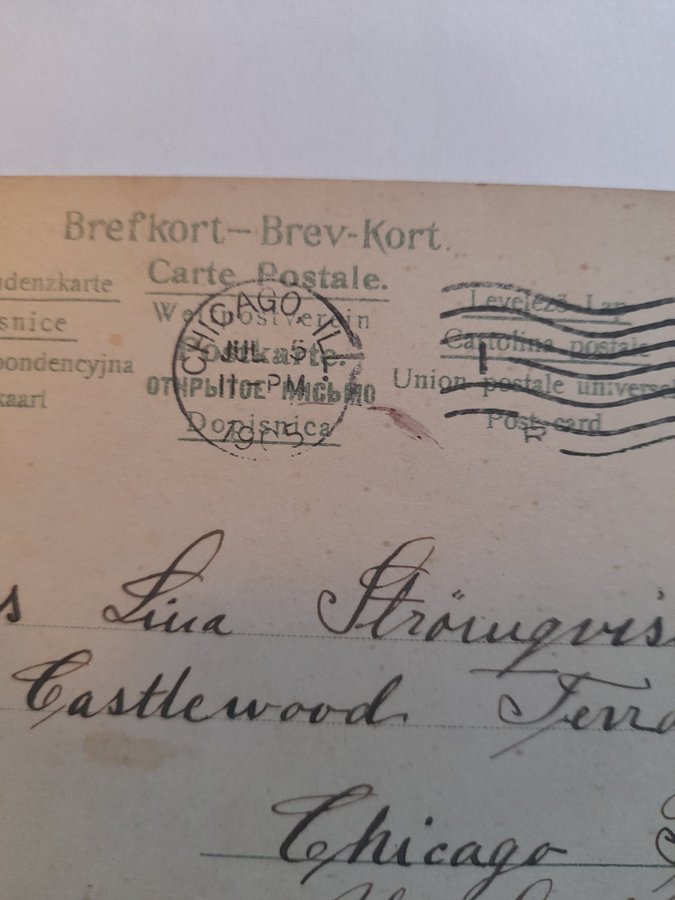 Brefkort—Brev-Kort.
Carte Postale.
ndenzkarte
Weltpostverein
snice
Postkarte.
pondencyjna
ОТКРЫТОЕ ПИСЬМО
kaart
Dopisnica
Levelező-Lap
Cartolina postale
Union postale universel
Post card
CHICAGO, ILL.
JUL 5
PM
s Lina Strömqvis
Castlewood Terra
Chicago